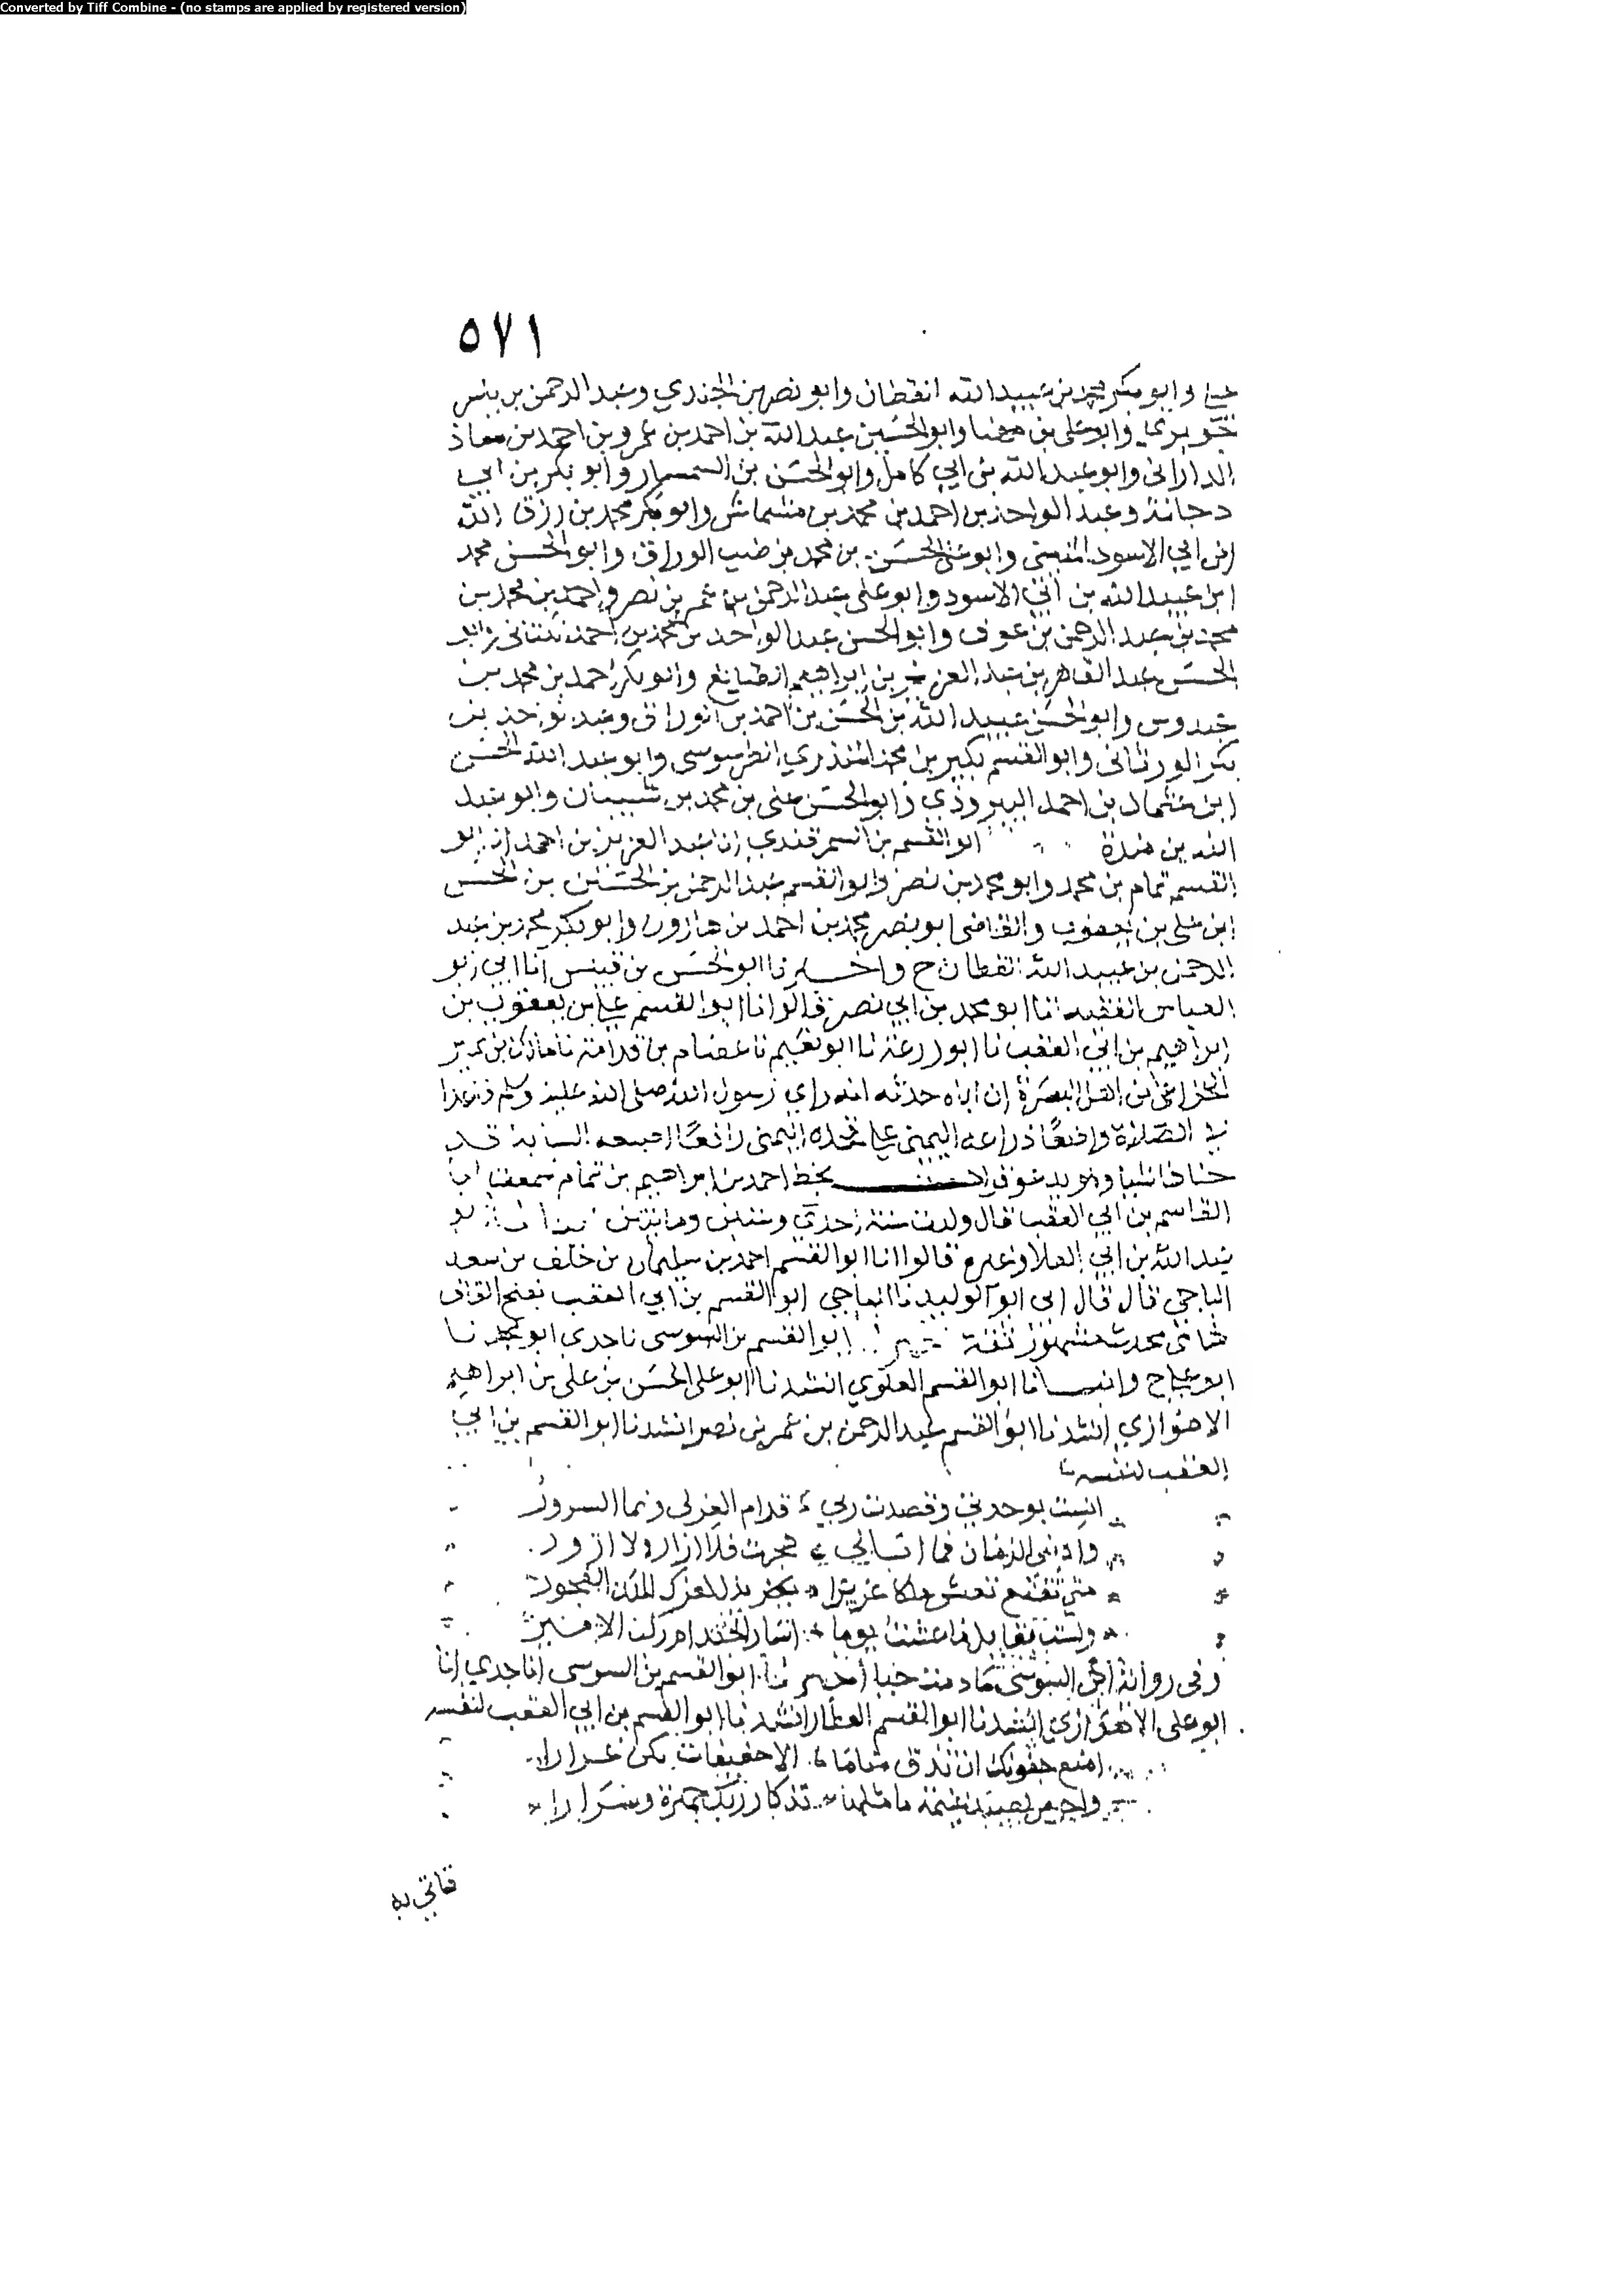 Converted by Tiff Combine - (no stamps are applied by registered version)
٥٧١
وابو بكر محمد بن عبيد الله القطان وابو نصر بن الجندي وعبد الرحمن بن
وابو علي بن مهنا وابو الحسين عبد الله بن احمد بن عمرو بن احمد بن معاذ
الداراني وابو عبد الله بن ابي كامل وابو الحسن بن السمسار وابو بكر بن ابي
دجانة وعبد الواحد بن احمد بن محمد بن مشماش وابو بكر محمد بن رزق الله
ابن ابي الاسود المنيني وابو علي الحسن بن محمد بن طيب الوراق وابو الحسن محمد
ابن عبيد الله بن ابي الاسود وابو علي عبد الرحمن بن عمر بن نصر واحمد بن محمد بن
محمد بن عبد الرحمن بن عوف وابو الحسن عبد الواحد بن محمد بن احمد وابو
الحسن عبد القاهر بن عبد العزيز بن ابراهيم الصايغ وابو بكر احمد بن محمد بن
عبدوس وابو الحسن عبيد الله بن الحسن بن احمد بن الوراق وعبد الواحد بن
بكر الورثاني وابو القسم بكير بن محمد المنذري الطرسوسي وابو عبد الله الحسن
ابن عثمان بن احمد اليبرودي وابو الحسن علي بن محمد بن شيبان وابو عبد
الله بن مندة ابو القسم بن السمرقندي انا عبد العزيز بن احمد انا ابو
القسم تمام بن محمد وابو محمد بن نصر وابو القسم عبد الرحمن بن الحسين بن الحسن
ابن علي بن يعقوب والقاضي ابو نصر محمد بن احمد بن هارون وابو بكر محمد بن عبد
الرحمن بن عبيد الله القطان ح واخبرنا ابو الحسن بن قبيس انا ابي ابو
العباس الفقيه انا ابو محمد بن ابي نصر قالوا انا ابو القسم علي بن يعقوب بن
ابراهيم بن ابي العقب نا ابو زرعة نا ابو نعيم نا عصام بن قدامة نا مالك بن نمير
الخزاعي من اهل البصرة ان اباه حدثه انه راي رسول الله صلى الله عليه وسلم قاعدا
في الصلاة واضعا ذراعه اليمنى على فخذه اليمنى رافعا اصبعه السبابة قد
حناها شيئا وهو يدعو بخط احمد بن ابراهيم بن تمام سمعت ابا
القاسم بن ابي العقب قال ولدت سنة احدى وستين ومايتين ابو
عبد الله بن ابي العلا وغيره قالوا انا ابو القسم احمد بن سليمان بن خلف بن سعد
الباجي قال قال ابي ابو الوليد نا الباجي ابو القسم بن ابي العقب بفتح القاف
شامي محدث مشهور ثقة ابو القسم بن السوسي نا جدي ابو محمد نا
ابو عجاج وانبانا ابو القسم العلوي انشدنا ابو علي الحسن بن علي بن ابراهيم
الاهوازي انشدنا ابو القسم عبد الرحمن بن عمر بن نصر انشدنا ابو القسم بن ابي
العقب لنفسه
انست بوحدتي وقصدت ربي فدام العز لي ونما السرور
وادبني الزمان فما ابالي هجرت فلا ازار ولا ازور
متى تقنع تعش ملكا عزيزا يذل لعزك الملك الفجور
ولست بقايل ما عشت يوما اسار الجند ام ركب الامير
وفي رواية ابن السوسي ما دمت حيا اخبرنا ابو القسم بن السوسي انا جدي انا
ابو علي الاهوازي انشدنا ابو القسم العطار انشدنا ابو القسم بن ابي العقب لنفسه
امنع جفونك ان تذق مناما
تذكار ربك جهرة وسرارا